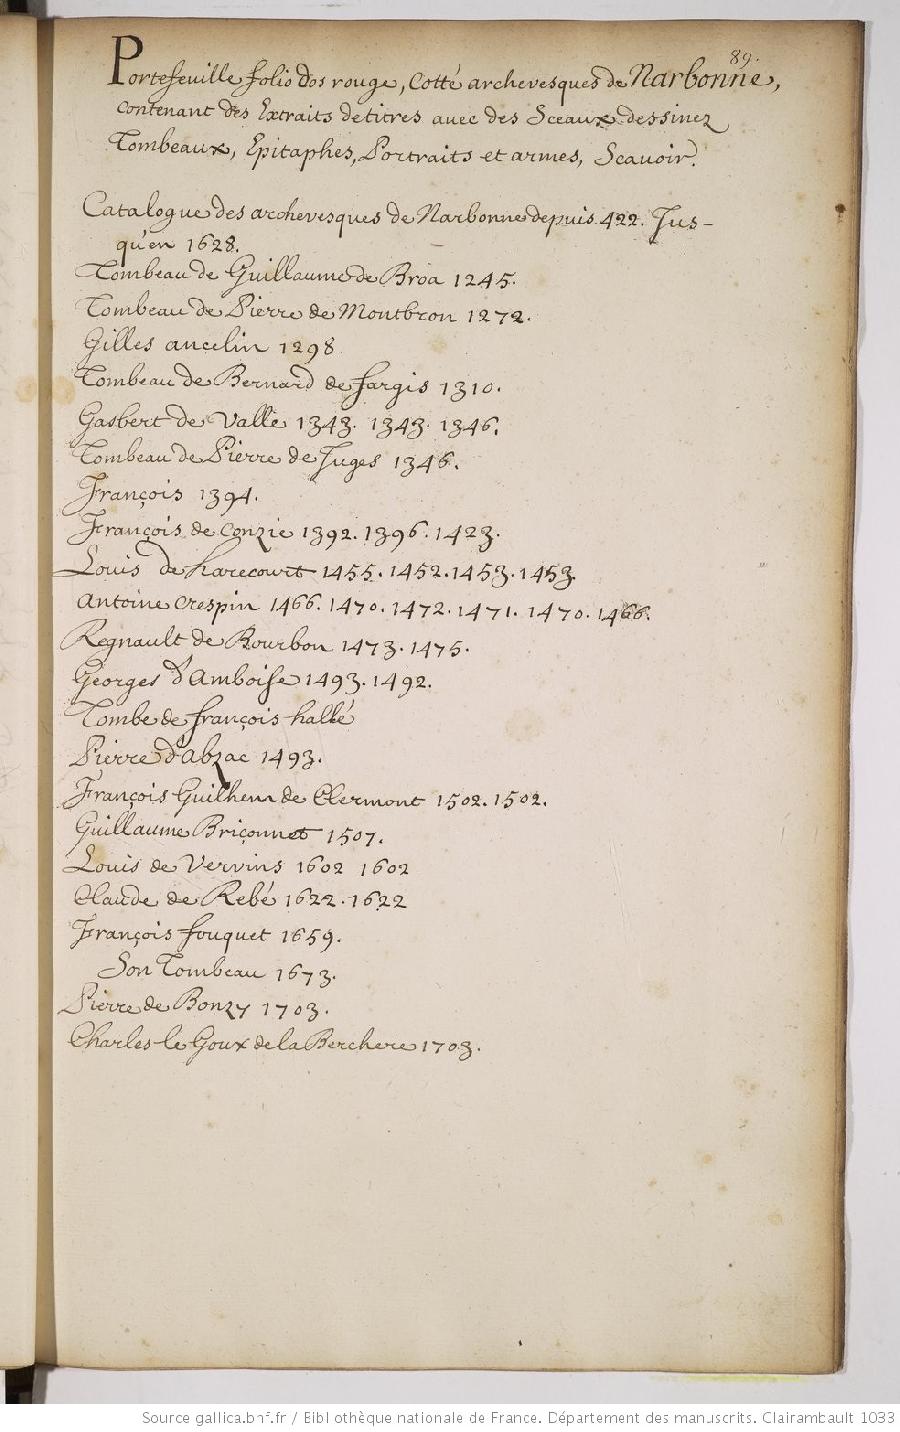 89.
Portefeuille folio dos rouge, Cotté archevesques de Narbonne,
contenant des Extraits de titres avec des Sceaux dessinez
Tombeaux, Epitaphes, Portraits et armes, Scavoir.
Catalogue des archevesques de Narbonne depuis 422. Jus-
qu'en 1628.
Tombeau de Guillaume de Broa 1245.
Tombeau de Pierre de Montbron 1272.
Gilles ancelin 1298
Tombeau de Bernard de fargis 1310.
Gasbert de Valle 1343. 1343. 1346.
Tombeau de Pierre de Juges 1346.
François 1394.
François de Conzie 1392. 1396. 1423.
Louis de harecourt 1455. 1452. 1453. 1453.
Antoine Crespin 1466. 1470. 1472. 1471. 1470. 1466.
Regnault de Bourbon 1473. 1475.
Georges d'Amboise 1493. 1492.
Tombe de françois hallé
Pierre d'abzac 1493.
François Guilhem de Clermont 1502. 1502.
Guillaume Briçonnet 1507.
Louis de Vervins 1602 1602
Claude de Rebé 1622. 1622
François fouquet 1659.
Son Tombeau 1673.
Pierre de Bonzy 1703.
Charles le Goux de la Berchere 1703.
Source gallica.bnf.fr / Bibliothèque nationale de France. Département des manuscrits. Clairambault 1033